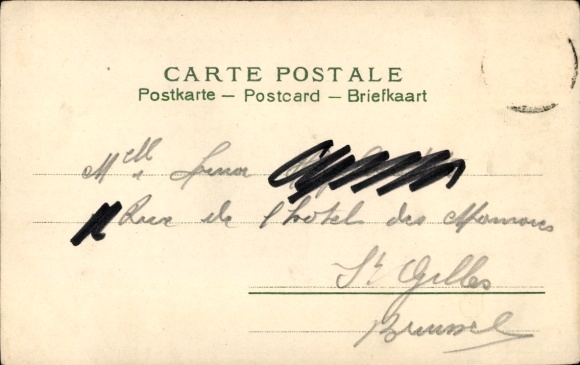 CARTE POSTALE
Postkarte – Postcard – Briefkaart
Mell
Rue de l'hotel des Monnaies
St Gilles
Bruxel